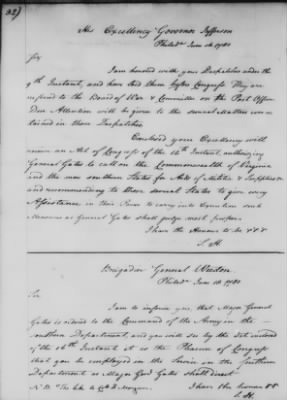 His Excellency Governor Jefferson
Philada June 14 1780
Sir
I am honored with your Despatches under the
9th Instant, and have laid them before Congress. They are
referred to the Board of War & Committee on the Post Office
Due Attention will be given to the several Matters con-
tained in those Despatches
Enclosed your Excellency will
receive an Act of Congress of the 14th Instant, authorizing
General Gates to call on the Commonwealth of Virginia
and the more southern States for Aids of Militia & Supplies &
and recommending to those several States to give every
Assistance in their Power to carry into Execution such
Measures as General Gates shall judge most proper
I have the Honour to be &&&
S. H.
Brigadier General Weedon
Philada June 1780
Sir
I am to inform you, that Major General
Gates is ordered to the Command of the Army in the
southern Department, and you will see by the Act enclosed
of the 14th Instant it is the Pleasure of Congress
that you be employed in the Service in the Southern
Department as Major Genl Gates shall direct
I have the honour &&
S. H.
N.B. The like to Colo D. Morgan